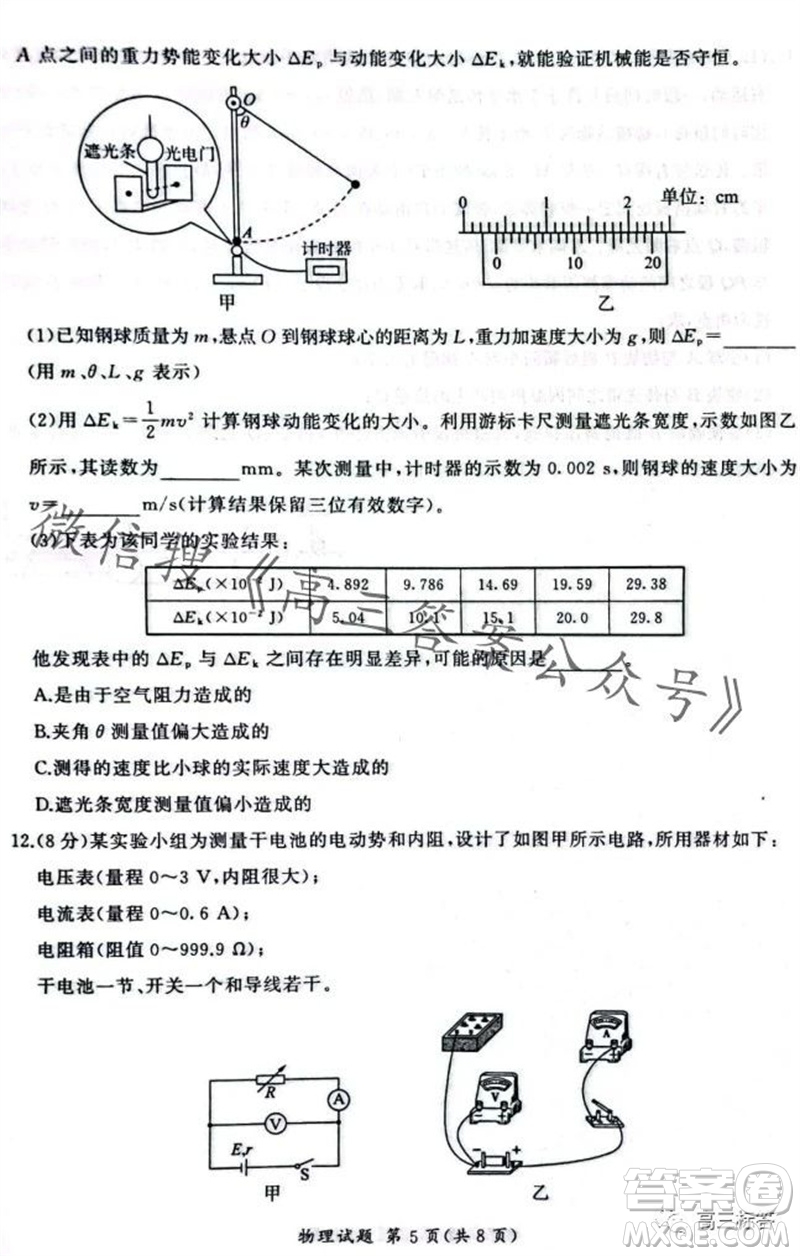 A 点之间的重力势能变化大小 ΔEₚ 与动能变化大小 ΔEₖ,就能验证机械能是否守恒。
O
θ
遮光条
光电门
A
计时器
甲
0 1 2 单位: cm
0 10 20
乙
(1)已知钢球质量为 m,悬点 O 到钢球球心的距离为 L,重力加速度大小为 g,则 ΔEₚ=______
(用 m、θ、L、g 表示)
(2)用 ΔEₖ=1/2 mv² 计算钢球动能变化的大小。利用游标卡尺测量遮光条宽度,示数如图乙
所示,其读数为______mm。某次测量中,计时器的示数为 0.002 s,则钢球的速度大小为
v=______m/s(计算结果保留三位有效数字)。
(3)下表为该同学的实验结果:
ΔEₚ(×10⁻² J) 4.892 9.786 14.69 19.59 29.38
ΔEₖ(×10⁻² J) 5.04 10.1 15.1 20.0 29.8
他发现表中的 ΔEₚ 与 ΔEₖ 之间存在明显差异,可能的原因是______。
A.是由于空气阻力造成的
B.夹角 θ 测量值偏大造成的
C.测得的速度比小球的实际速度大造成的
D.遮光条宽度测量值偏小造成的
微信搜《高三答案公众号》
12.(8 分)某实验小组为测量干电池的电动势和内阻,设计了如图甲所示电路,所用器材如下:
电压表(量程 0～3 V,内阻很大);
电流表(量程 0～0.6 A);
电阻箱(阻值 0～999.9 Ω);
干电池一节、开关一个和导线若干。
R
A
V
E,r
S
甲
A
V
- +
乙
答案圈
高三标答
物理试题 第 5 页(共 8 页)